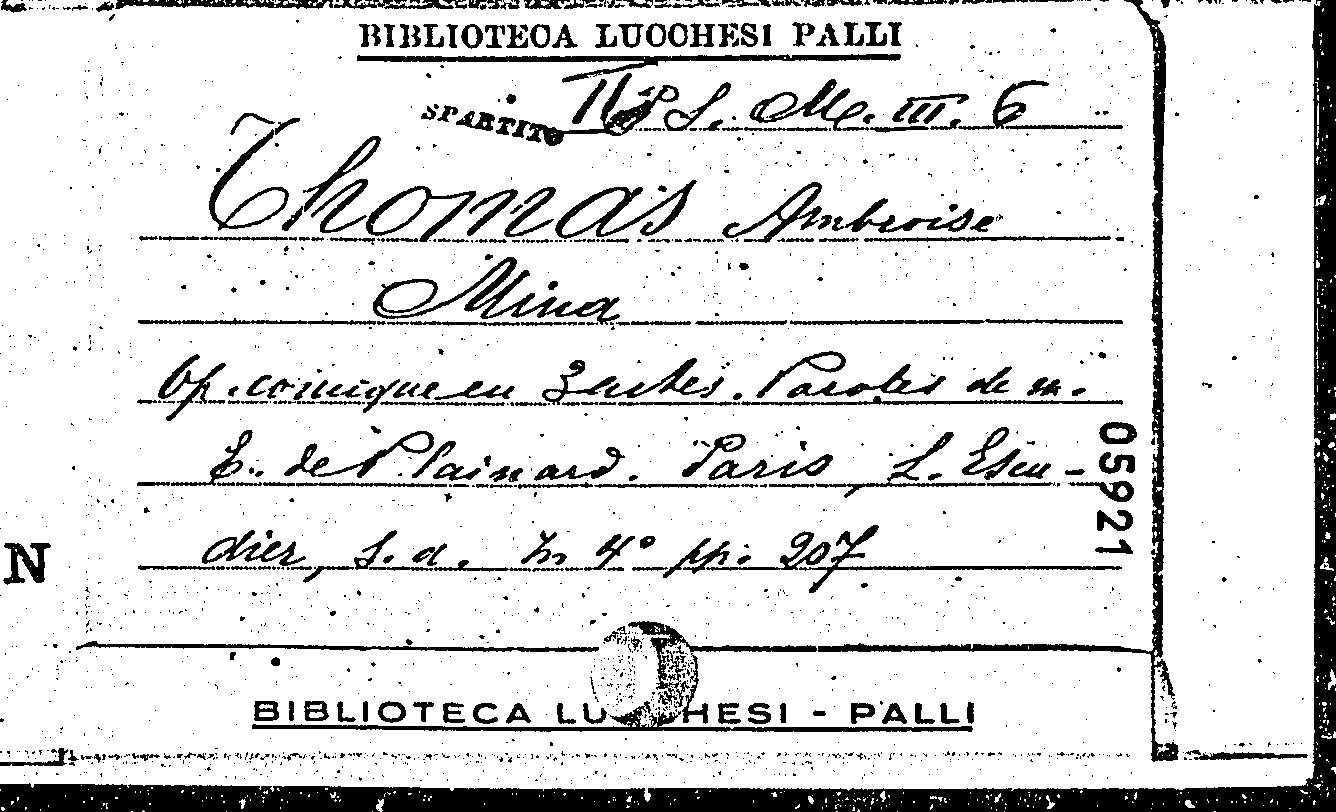 BIBLIOTECA LUCCHESI PALLI
SPARTITO S. M. III. 6
Thomas Ambroise
Mina
Op. comique en 3 actes. Paroles de m.
E. de Plainard. Paris, L. Escu-
dier, s. d. In 4° pp. 207
05921
N
BIBLIOTECA LUCCHESI - PALLI